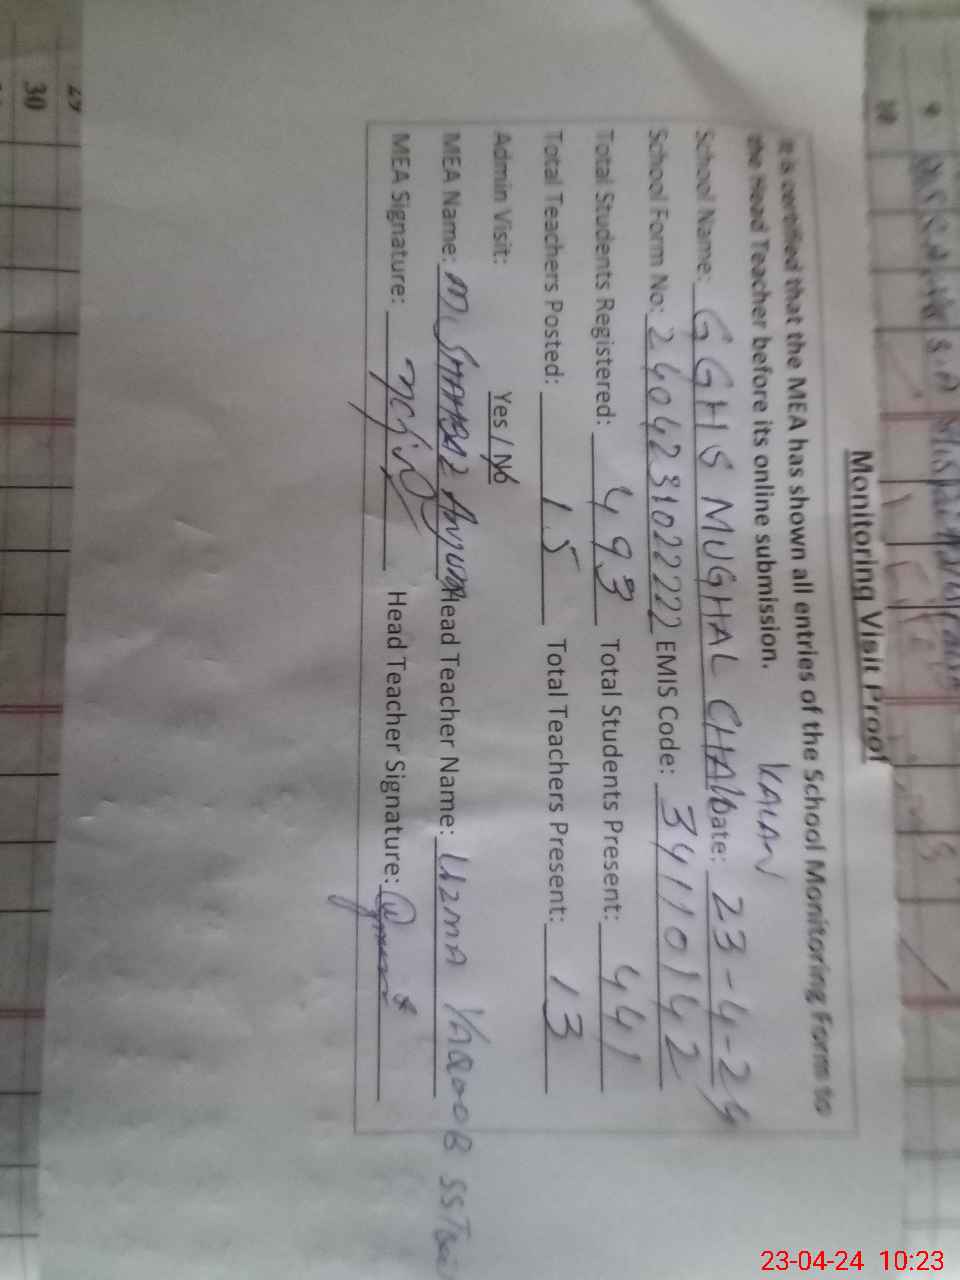 Monitoring Visit Proof
It is certified that the MEA has shown all entries of the School Monitoring Form to
the Head Teacher before its online submission.
KALAN
School Name: GGHS MUGHAL CHAK Date: 23-4-24
School Form No: 2404231022222 EMIS Code: 34110142
Total Students Registered: 493 Total Students Present: 441
Total Teachers Posted: 15 Total Teachers Present: 13
Admin Visit: Yes / No
MEA Name: M. SHAHBAZ Anjum Head Teacher Name: UZMA YAQOOB
MEA Signature: Head Teacher Signature:
29
30
23-04-24 10:23